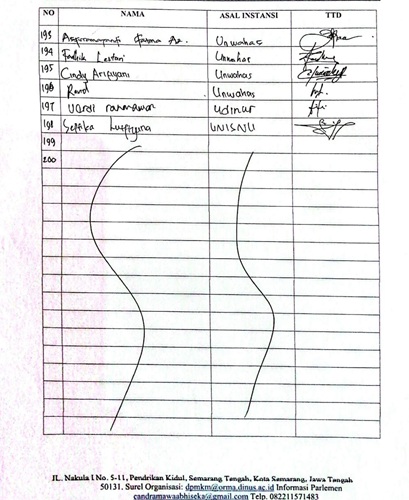 NO NAMA ASAL INSTANSI TTD
193 Unwahas
194 Fadila Lestari Unwahas
195 Cindy Aripyani Unwahas
196 Unwahas
197 udinur
198 Seftika UNISNU
199
200
JL. Nakula I No. 5-11, Pendrikan Kidul, Semarang Tengah, Kota Semarang, Jawa Tengah
50131. Surel Organisasi: dpmkm@orma.dinus.ac.id Informasi Parlemen
candramawaabhiseka@gmail.com Telp. 082211571483